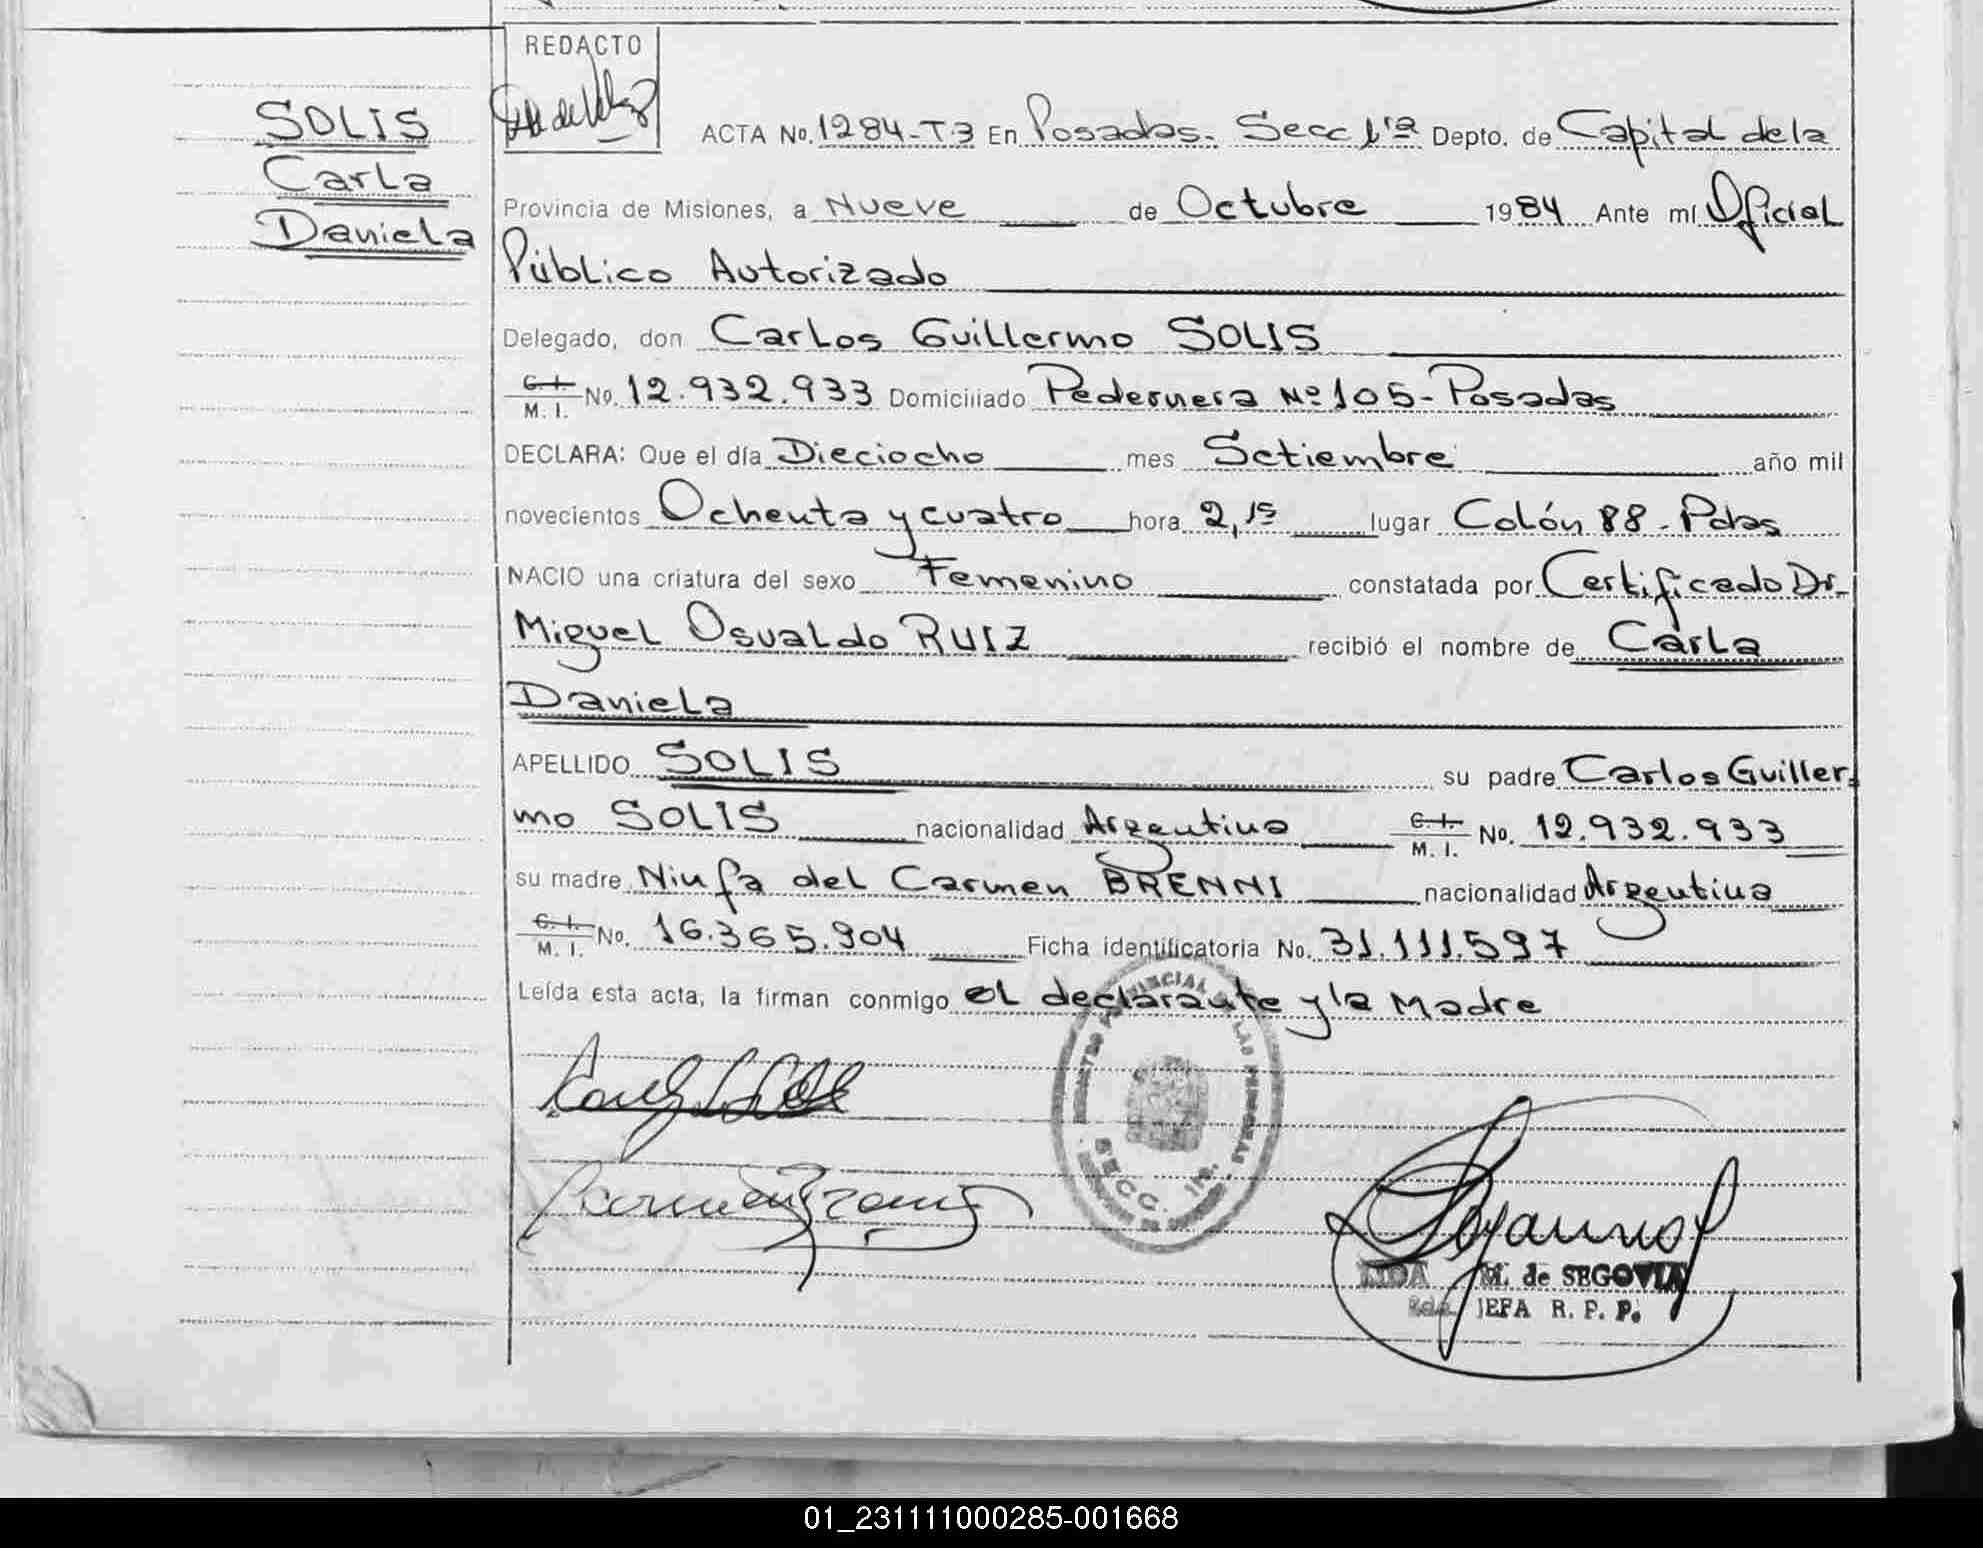 SOLIS
Carla
Daniela
REDACTO
ACTA No. 1284-T3 En Posadas. Secc 1ra Depto. de Capital de la
Provincia de Misiones, a Nueve de Octubre 1984 Ante mí Oficial
Público Autorizado
Delegado, don Carlos Guillermo SOLIS
C.I. M. I. No. 12.932.933 Domiciliado Pedernera Nº 105-Posadas
DECLARA: Que el día Dieciocho mes Setiembre año mil
novecientos Ochenta y cuatro hora 2,15 lugar Colón 88-Pdas
NACIO una criatura del sexo Femenino constatada por Certificado Dr.
Miguel Osvaldo RUIZ recibió el nombre de Carla
Daniela
APELLIDO SOLIS su padre Carlos Guiller-
mo SOLIS nacionalidad Argentina C.I. M. I. No. 12.932.933
su madre Ninfa del Carmen BRENNI nacionalidad Argentina
C.I. M. I. No. 16.365.904 Ficha identificatoria No. 31.111.597
Leída esta acta, la firman conmigo el declarante y la Madre
REGISTRO PROVINCIAL DE LAS PERSONAS
SECC. 1ra.
LIDA M. de SEGOVIA
JEFA R. P. P.
01_231111000285-001668